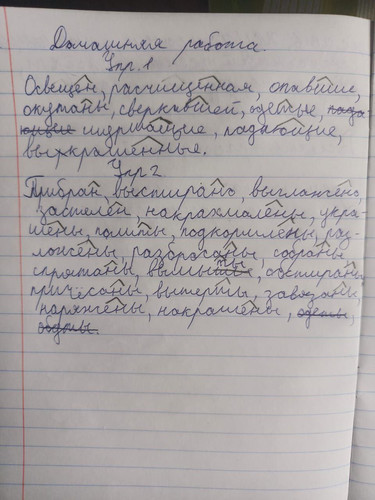 Домашняя работа.
Упр. 1
Освещен, расчищенная, опавшие,
окутаны, сверкавшей, одетые,
шуршащие, падающие,
выкрашенные.
Упр 2
Прибран, выстирано, выглажено,
застелен, накрахмалены, укра-
шены, политы, подкормлены, раз-
ложены, разбросаны, собраны,
спрятаны, вымыты, обстираны,
причёсаны, вытерты, завязаны,
наряжены, накрашены, одеты,
обуты.